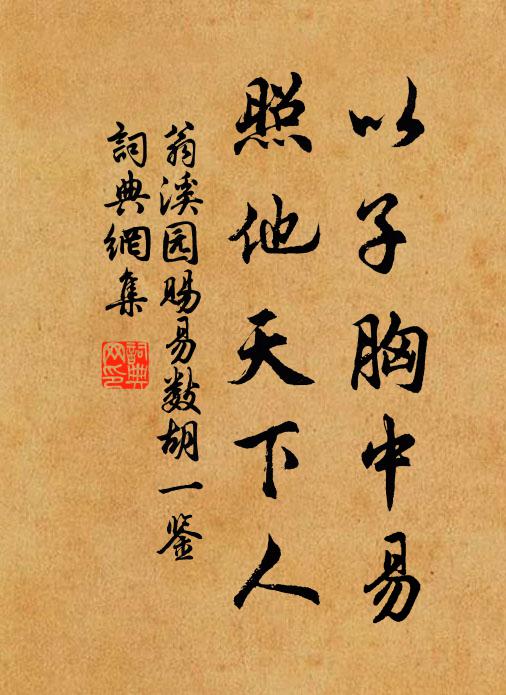 以子胸中易
照他天下人
翁溪园赐易数胡一鉴
詞典網集
詞典網印